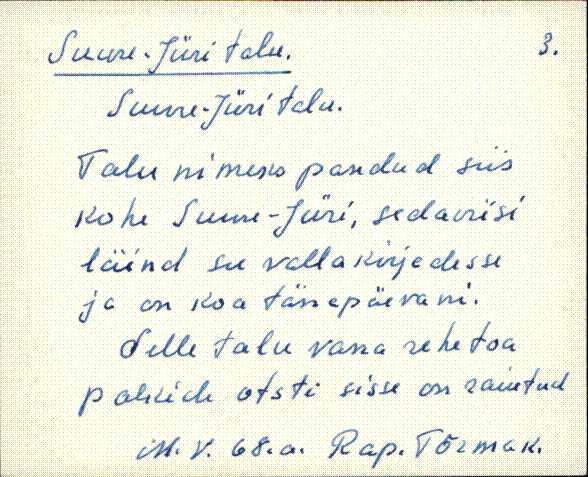 Suure-Jüri talu. 3.
Suure-Jüri talu.
Talu nimeks pandud siis
kohe Suure-Jüri, sedaviisi
läind su vallakirjedesse
ja on koa tänapäevani.
Selle talu vana rehetoa
palkide otsti sisse on raiutud
M. V. 68.a. Rap. Tõrmak.